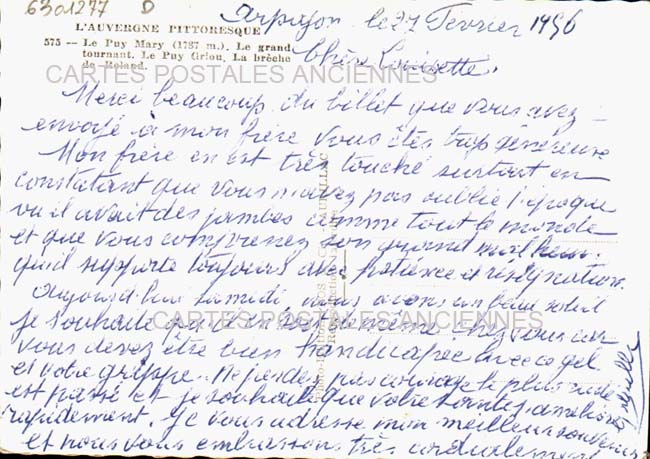 6301277 D
L'AUVERGNE PITTORESQUE
575 — Le Puy Mary (1787 m.). Le grand
tournant. Le Puy Griou. La brèche
de Roland.
Arpajon le 27 Fevrier 1956
Chère Louisette,
CARTES POSTALES ANCIENNES
Merci beaucoup du billet que vous avez
envoyé à mon frère vous êtes trop généreuse
Mon frère en est très touché surtout en
constatant que vous n'avez pas oublié l'époque
ou il avait des jambes comme tout le monde
et que vous comprenez son grand malheur.
qu'il supporte toujours avec patience et résignation.
Aujourd'hui samedi nous avons un beau soleil
CARTES POSTALES ANCIENNES
je souhaite qu'il en soit de même chez vous car
vous devez être bien handicapée avec ce gel
et votre grippe. Ne perdez pas courage le plus rude
est passé et je souhaite que votre santé s'améliore
rapidement. Je vous adresse mon meilleur souvenir
et nous vous embrassons très cordialement